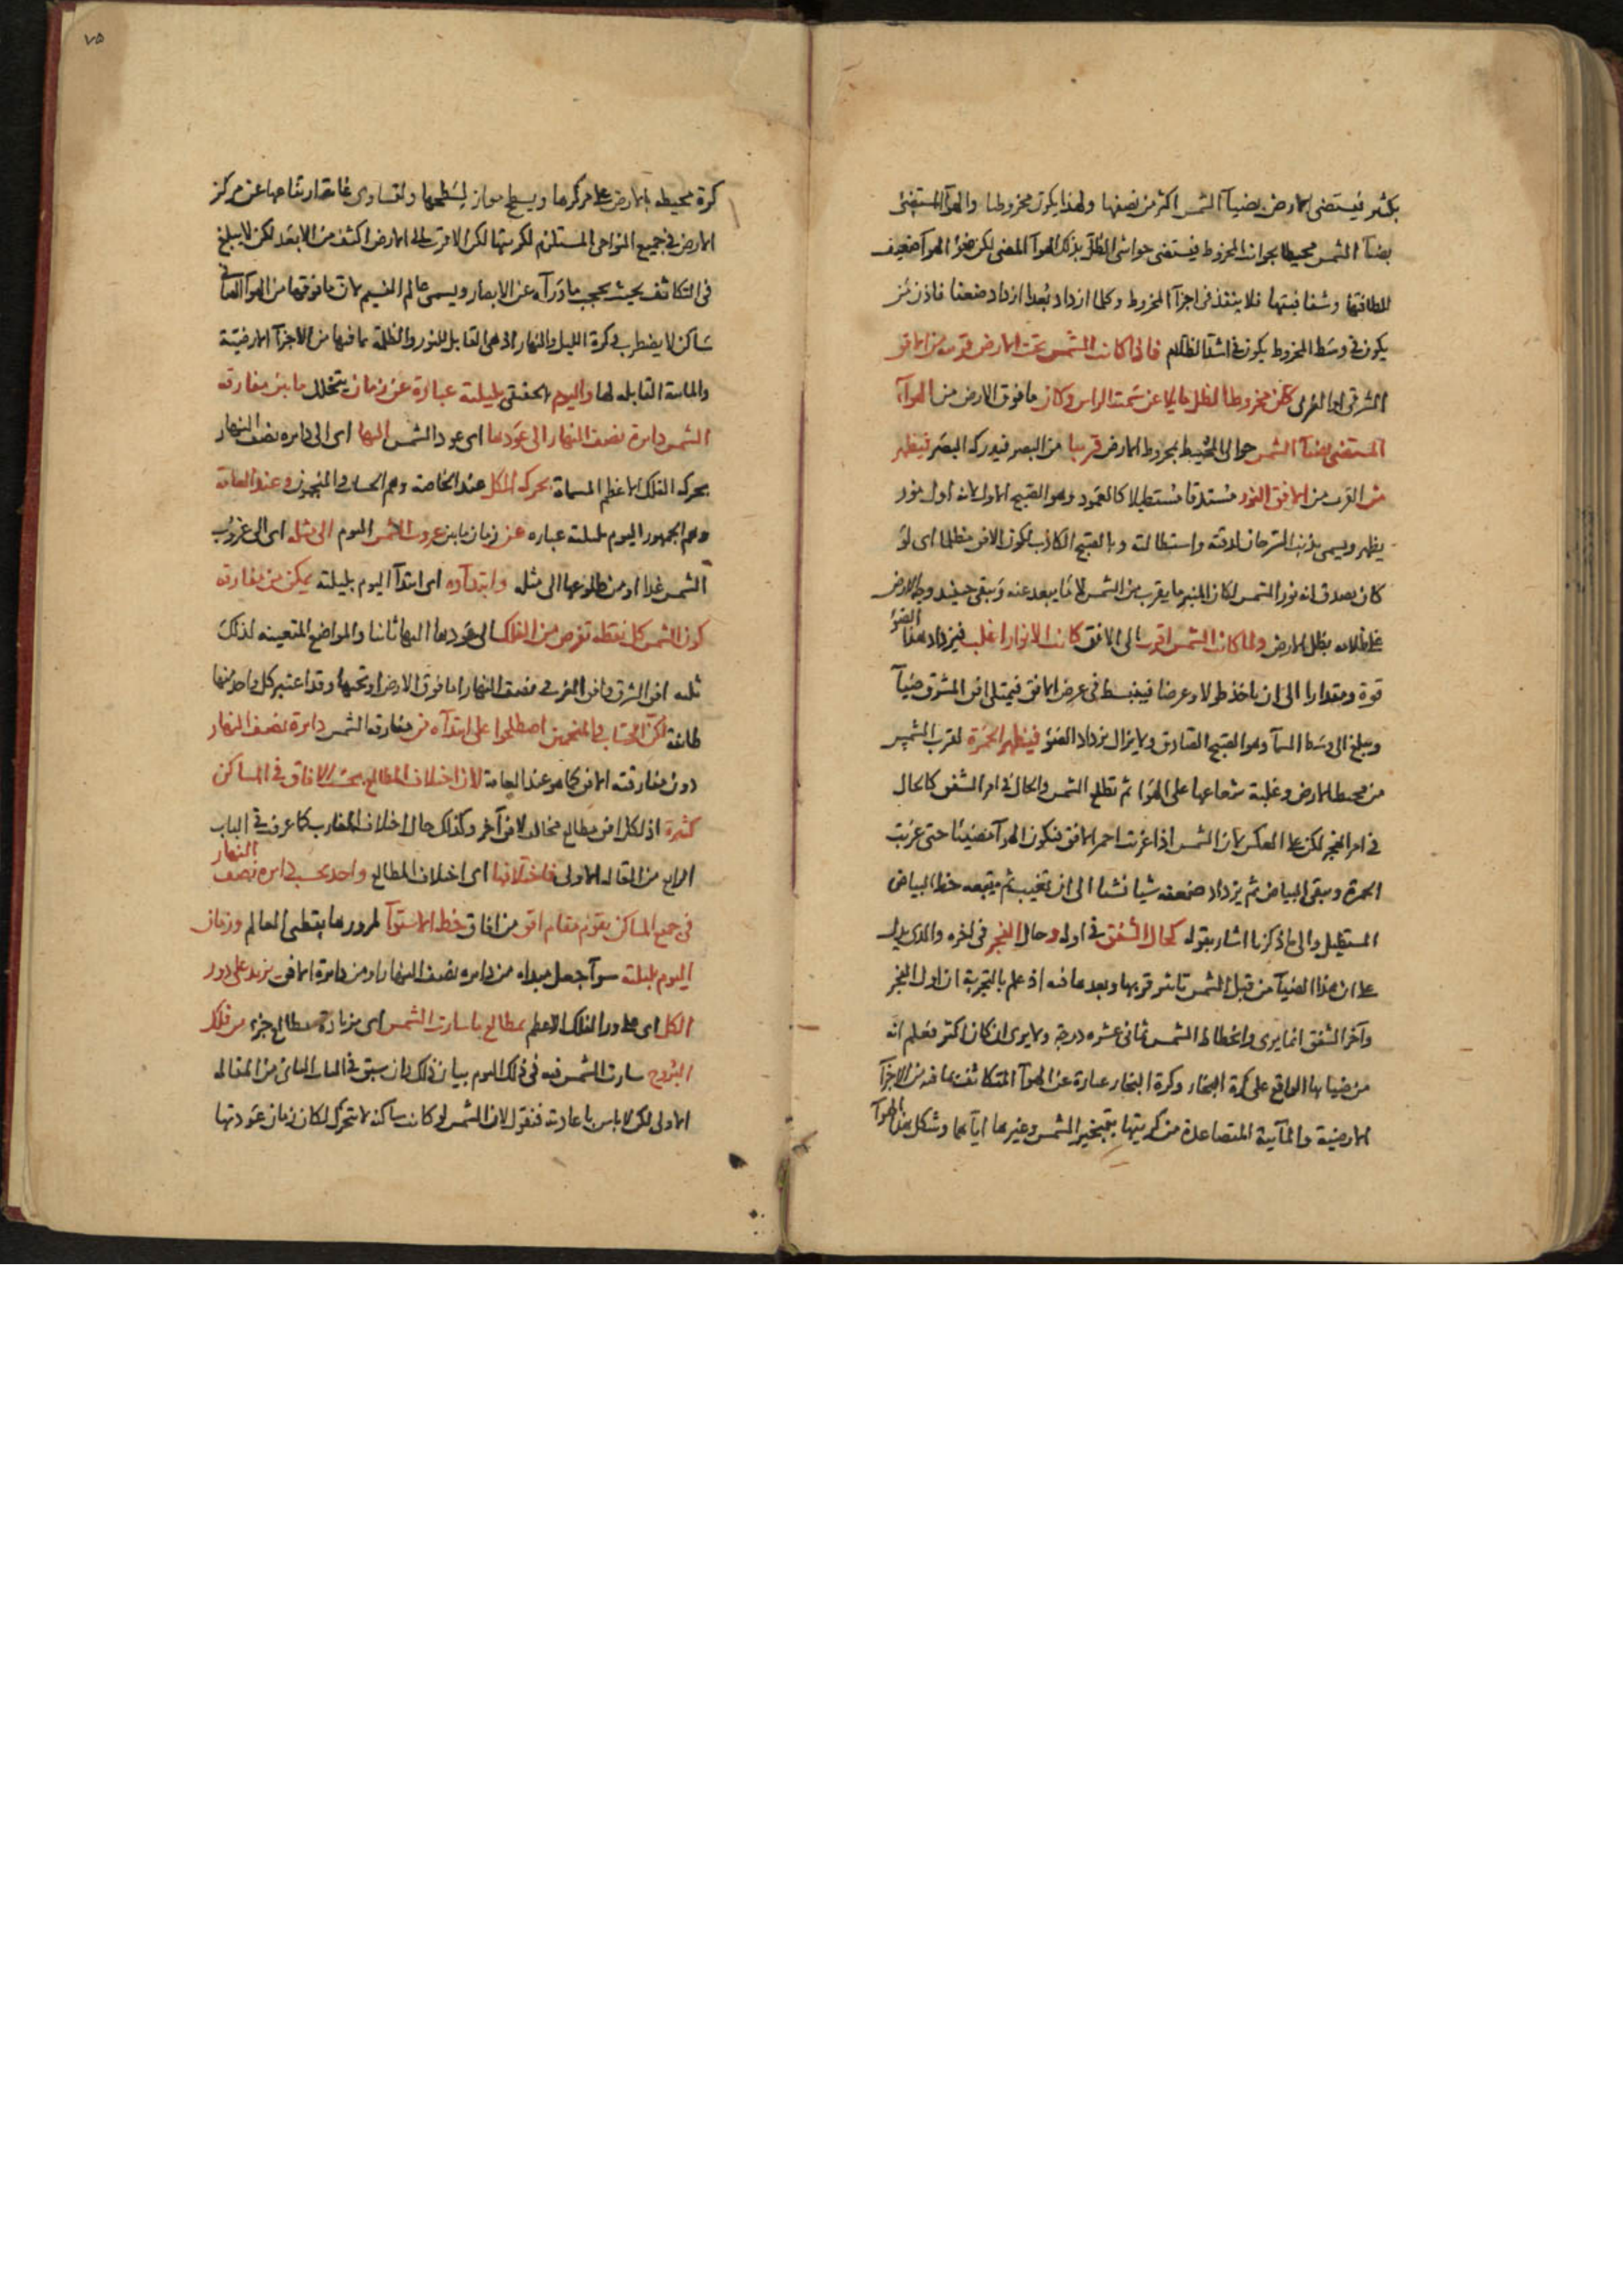 بكثير فيستضئ الارض بضيآ الشمس اكثر من نصفها ولهذا يكون مخروطيا والهوآ المستضئ
بضيآ الشمس محيطا بجوانب المخروط فيستضئ حواشى الظل بذلك الهوآ المضئ لكن ضوء الهوآ ضعيف
للطافتها وشفافيتها فلا ينفذ فى اجزآ المخروط وكلما ازداد بُعدا ازداد ضعفا فاذن من
يكون فى وسط المخروط يكون فى اشد الظلام فاذا كانت الشمس تحت الارض قريبة من الافق
الشرقى او الغربى كان مخروط الظل مايلا عن سمت الراس وكان ما فوق الارض من الهوآ
المستضئ بضيآ الشمس حوالى المحيط بمخروط الارض قريبا من البصر فيدركه البصر فيظهر
من القرب من الافق النور مستدقا مستطيلا كالعمود وهو الصبح الاول لانه اول نور
يظهر ويسمى بذنب السرحان لدقته واستطالته وبالصبح الكاذب لكون الافق مظلما اى لو
كان يصدق انه نور الشمس لكان المنير ما يقرب من الشمس لا ما يبعد عنه ويبقى حينئذ وجه الارض
على ظلامه بظل الارض ولما كانت الشمس اقرب الى الافق كانت الانوار اغلب فيزداد هذا الضوء
قوة ومقدارا الى ان ياخذ طولا وعرضا فينبسط فى عرض الافق فيمتلى افق المشرق ضيآ
ويبلغ الى وسط السمآ وهو الصبح الصادق ولا يزال يزداد الضوء فيظهر الحمرة لقرب الشمس
من محيط الارض وغلبة شعاعها على الهوآ ثم تطلع الشمس والحال فى امر الشفق كالحال
فى امر الفجر لكن على العكس لان الشمس اذا غربت احمر الافق فيكون الهوآ مضيئا حتى غربت
الحمرة ويبقى البياض ثم يزداد ضعفه شيا فشيا الى ان تغيب ثم يتبعه خط البياض
المستطيل والى ما ذكرنا اشار بقوله كحال الشفق فى اوله وحال الفجر فى اخره والذى يدل
على ان هذا الضيآ من قبل الشمس تاثير قربها وبعدها فيه اذ علم بالتجربة ان اول الفجر
وآخر الشفق انما يرى وانحطاط الشمس ثمانى عشره درجة ولا يرى ان كان اكثر فعلم انه
من ضيائها الواقع على كرة البخار وكرة البخار عبارة عن الهوآ المتكاثف بما فيه من الاجزآ
الارضية والمآئية المتصاعدة من كريتها بتبخير الشمس وغيرها اياهما وشكل هذا الهوآ
كرة محيطه بالارض على مركزها وبسطح مواز لسطحها ولتساوى غاية ارتفاعها عن مركز
الارض فى جميع النواحى المستلزم لكريتها لكن الاقرب الى الارض اكثف من الابعد لكن لا يبلغ
فى التكاثف بحيث يحجب ما ورآه عن الابصار ويسمى عالم النسيم لان ما فوقها من الهوآ الصافى
ساكن لا يضطرب وكرة الليل والنهار اذ هى القابل للنور والظلمة بما فيها من الاجزآ الارضيّة
والمائية القابله لها واليوم الحقيقى بليلته عبارة عن زمان يتخلل ما بين مفارقة
الشمس دايرة نصف النهار الى عودها اى عود الشمس اليها اى الى دايره نصف النهار
بحركه الفلك الاعظم المسماة بحركه الكل عند الخاصة وهم الحساب والمنجمون وعند العامة
وهم الجمهور اليوم بليلته عباره عن زمان ما بين غروب الشمس اليوم الى مثله اى الى غروب
الشمس غدا او من طلوعها الى مثله وابتدآوه اى ابتدآ اليوم بليلته يمكن من مفارقة
كون الشمس كل نقطه تفرض من الفلك الى عودها اليها ثانيا والمواضع المتعينه لذلك
ثلثه افق الشرق وافق الغرب ونصف النهار اما فوق الارض او تحتها وقد اعتبر كل واحد منها
طائفة لكن الحساب والمنجمين اصطلحوا على ابتدآه من مفارقه الشمس دايرة نصف النهار
دون مفارقته الافق كما هو عند العامة لان اختلاف المطالع بحسب الافاق فى المساكن
كثيرة اذ لكل افق مطالع مخالف لافق آخر وكذلك حال اختلاف المغارب كما عرف فى الباب
الرابع من المقاله الاولى فاختلافها اى اختلاف المطالع واحد بحسب دايره نصف النهار
فى جميع المساكن يقوم مقام افق من افاق خط الاستوآ لمرورها بقطبى العالم وزمان
اليوم بليلته سوآ جعل مبداه من دايره نصف النهار او من دايرة الافق يزيد على دور
الكل اى على دور الفلك الاعظم بمطالع ما سارت الشمس اى بزيادة مطالع جزء من فلك
البروج سارت الشمس فيه فى ذلك اليوم بيان ذلك وان سبق فى الباب الثانى من المقاله
الاولى لكن لا باس باعادته فنقول لان الشمس لو كانت ساكنه لا تتحرك لكان زمان عودتها